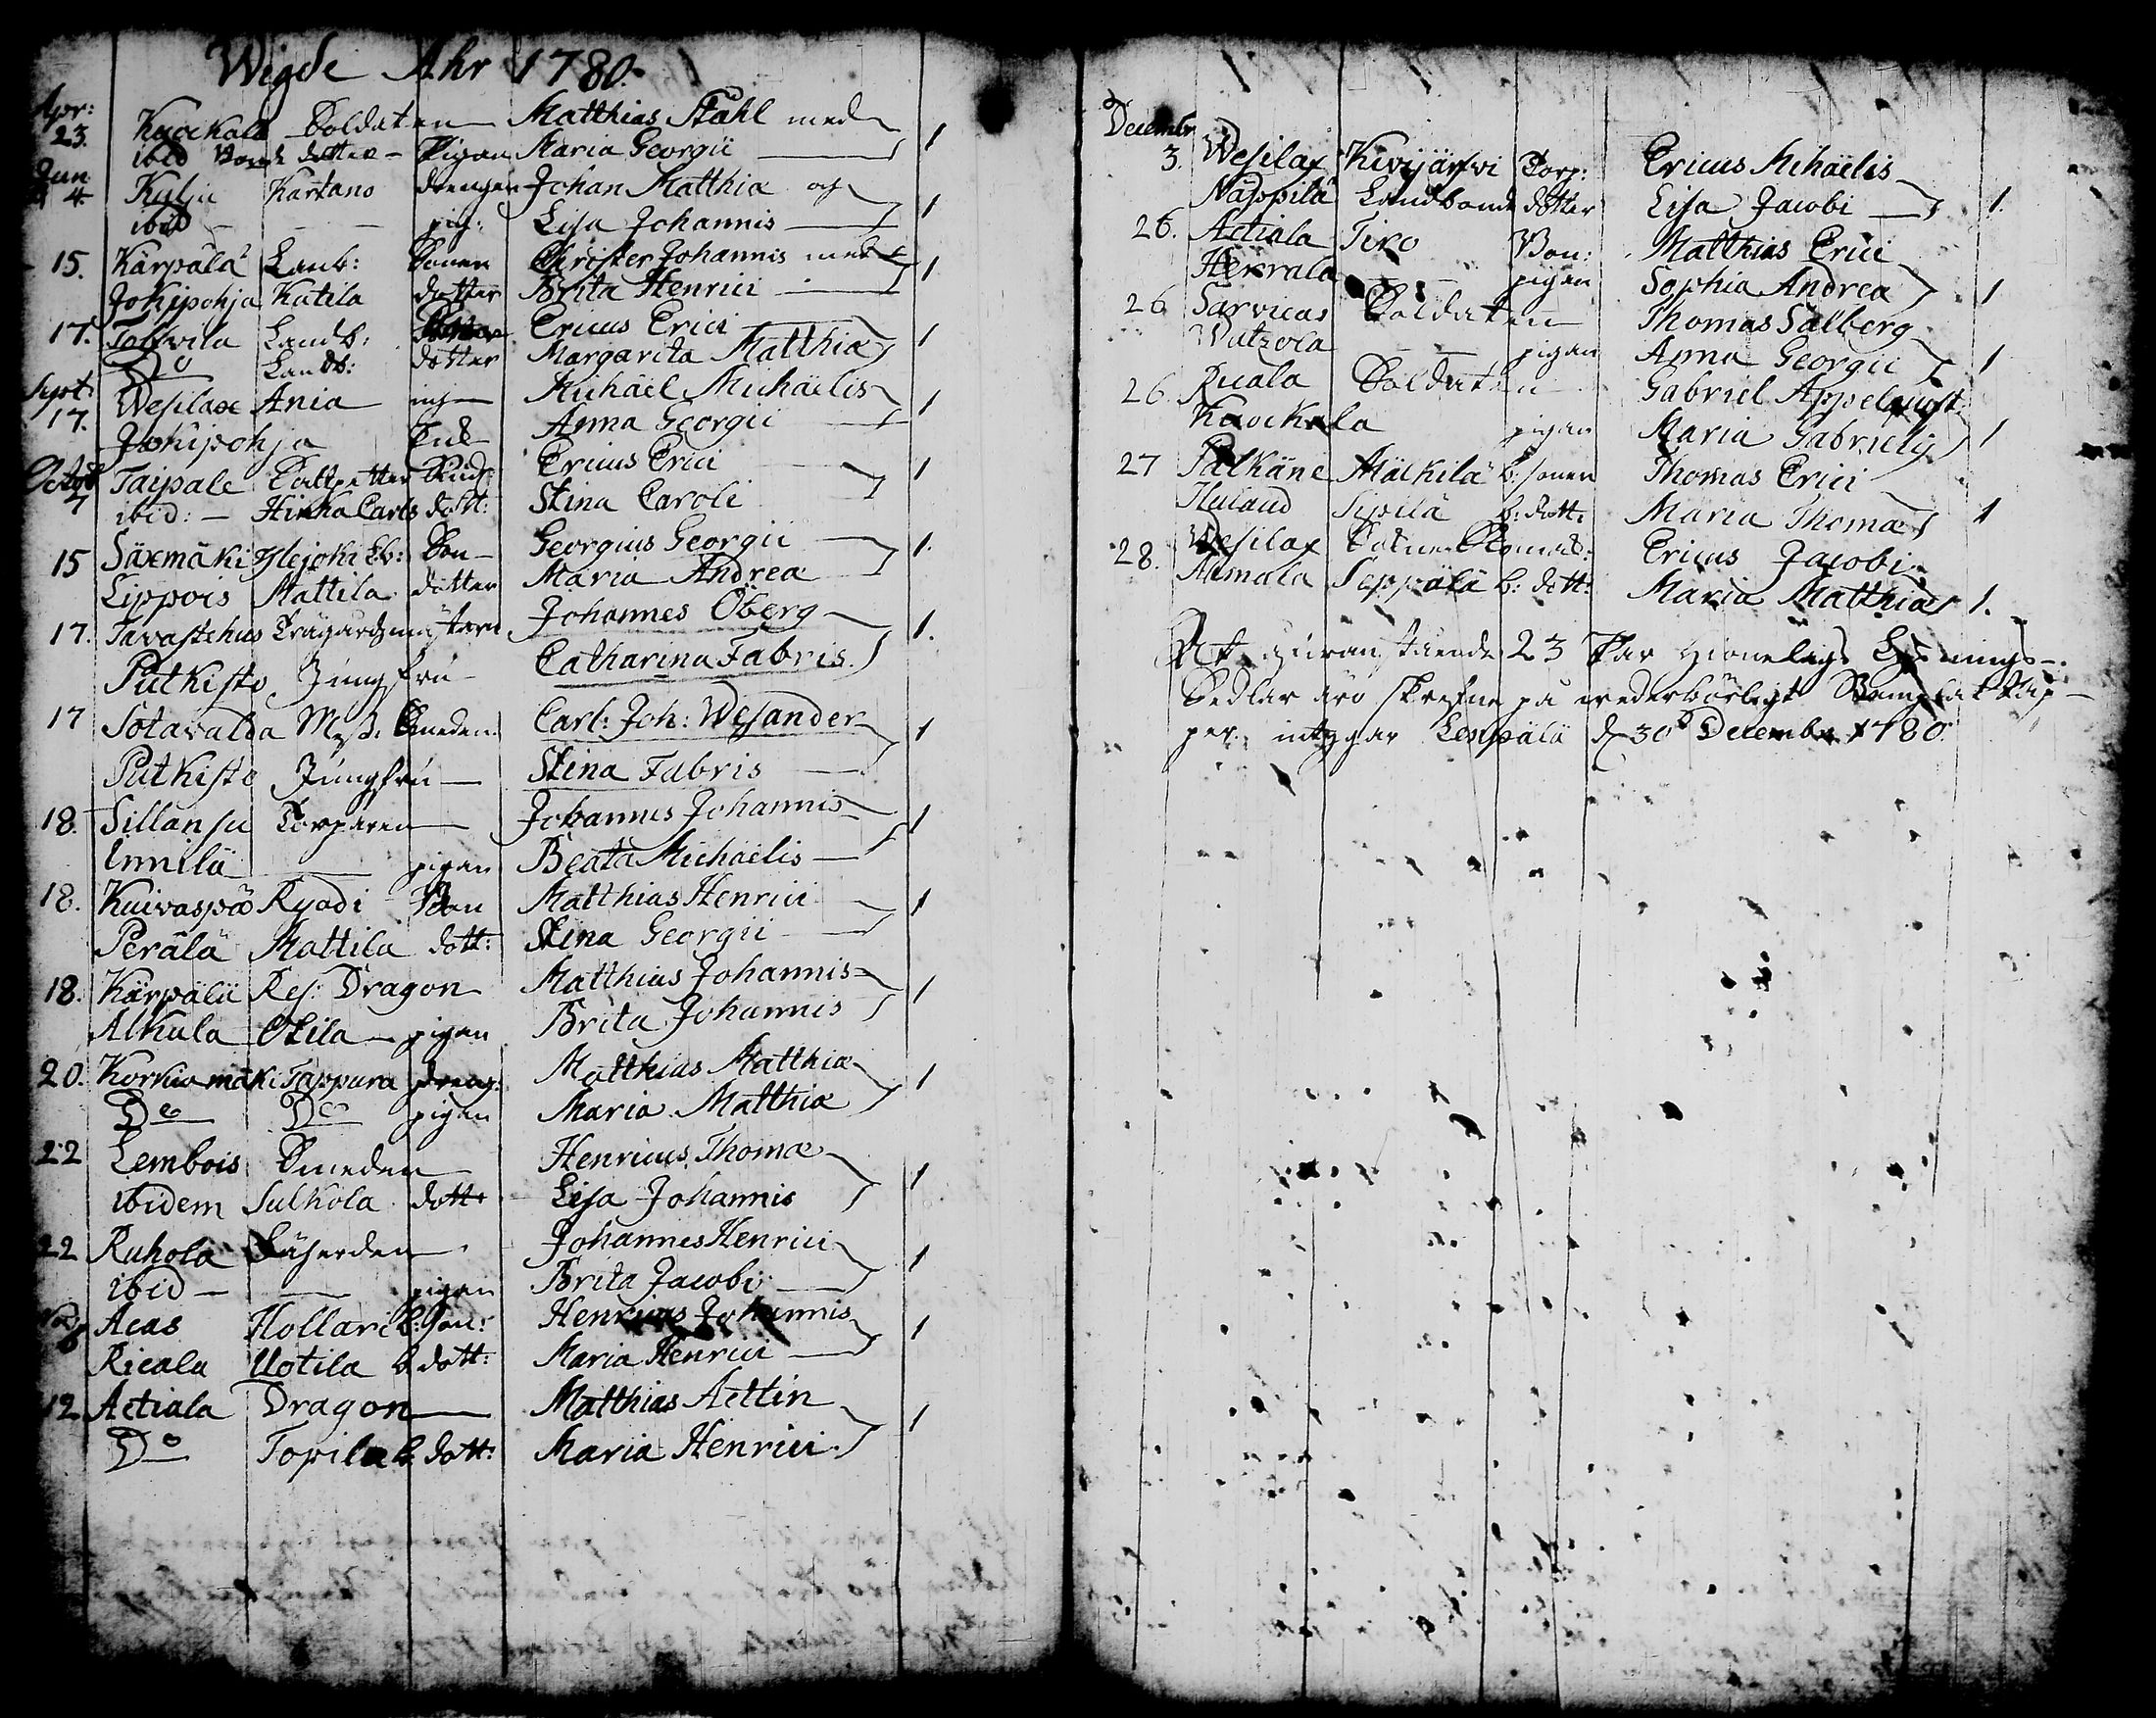 Wigde Ahr 1780.
Apr:
23. Kuockala Soldaten Matthias Stahl med 1
ibid Bonde dotter - Pigan Maria Georgii
Jun
4 Kylju Kartano drengen Johan Matthiæ och 1
ibid - - - pig: Lisa Johannis
15. Kärpälä Landb: Sonen Christer Johannis med 1
Jokipohja Katila dotter Brita Henrici
17. Tolvila Landb: Ericus Erici 1
Do Landb: dotter Margareta Matthiæ
Sept:
17. Wesilax Ania Michäel Michäelis 1
Jokipohja Anna Georgii
Octob
7 Taipale Ericus Erici 1
ibid: - Hinko Carls dott: Stina Caroli
15 Säxmäki Ylejoki Lb: Son Georgius Georgii 1.
Lippois Mattila dotter Maria Andreæ
17. Tavastehus Trägårdzmästaren Johannes Öberg 1.
Putkisto Jungfru Catharina Fabris.
17 Sotavalda Smeden Carl: Joh: Wesander 1
Putkisto Jungfru Stina Fabris
18. Sillansu Torparen Johannes Johannis 1
Ennilä pigan Beata Michaelis
18. Kuivaspä Ryodi Son Matthias Henrici 1
Perälä Mattila dott: Stina Georgii
18. Kärpälä Res: Dragon Matthias Johannis 1
Alkula Otila pigan Brita Johannis
20. Korkiamäki Tappura dreng: Matthias Matthiæ 1
Do Do pigan Maria Matthiæ
22 Lembois Smeden Henricus Thomæ 1
ibidem Sulkola dott: Lisa Johannis
22 Ruhola Johannes Henrici 1
ibid - pigan Brita Jacobi
Nov
6 Acas Hollari b: Son: Henricus Johannis 1
Ricala Uotila b. dott: Maria Henrici
12 Aetiala Dragon Matthias Aettin 1
Do Topila b. dott: Maria Henrici.
Decembr
3. Wesilax Kirijärfwi Torp: Ericus Mihäelis
Näppilä Landbonde dotter Lisa Jacobi 1.
26. Aetiala Tiro Bon: Matthias Erici
Herrala pigan Sophia Andreæ 1
26 Sarvicas Soldaten Thomas Salberg
Watzola pigan Anna Georgii 1
26 Kuala Soldaten Gabriel Appelquist
Kuockala pigan Maria Gabrielis 1
27 Pälkäne Mäckilä b: sonen Thomas Erici
Huland Sipilä b: dott: Maria Thomæ 1
28. Wesilax Ericus Jacobi
Numala Seppälä b: dott: Maria Matthiæ 1.
At ofvanstående 23 Par Hionelags Lysnings-
Sedlar äro skrefne på wederbörligt Stemplat Pap-
per intygar Lempälä d 30d Decembr 1780.